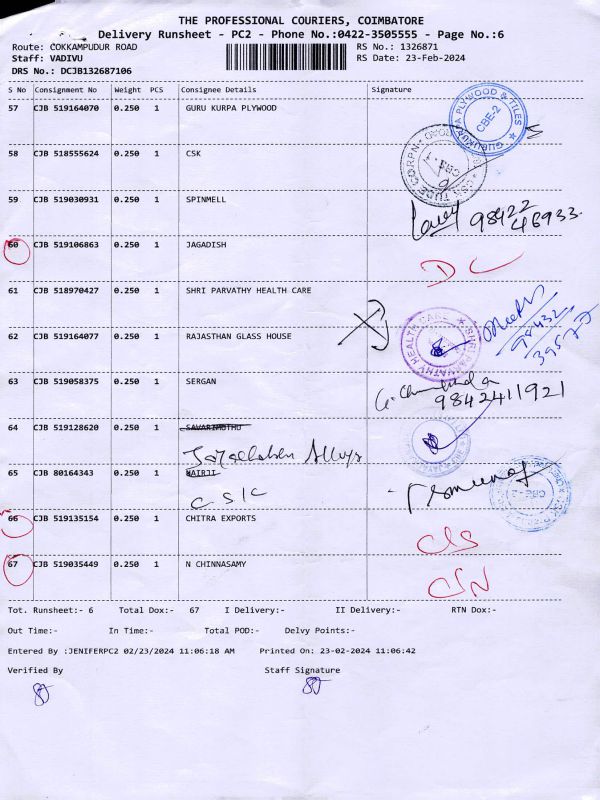 THE PROFESSIONAL COURIERS, COIMBATORE
Delivery Runsheet - PC2 - Phone No.:0422-3505555 - Page No.:6
Route: COKKAMPUDUR ROAD RS No.: 1326871
Staff: VADIVU RS Date: 23-Feb-2024
DRS No.: DCJB132687106
S No Consignment No Weight PCS Consignee Details Signature
57 CJB 519164070 0.250 1 GURU KURPA PLYWOOD
GURUKURPA PLYWOOD & TILES CBE-2
58 CJB 518555624 0.250 1 CSK
59 CJB 519030931 0.250 1 SPINMELL
98422
46933
60 CJB 519106863 0.250 1 JAGADISH
DC
61 CJB 518970427 0.250 1 SHRI PARVATHY HEALTH CARE
SHRI PARVATHY HEALTH CARE
98432
39577
62 CJB 519164077 0.250 1 RAJASTHAN GLASS HOUSE
63 CJB 519058375 0.250 1 SERGAN
9842411921
64 CJB 519128620 0.250 1 SAVARIMUTHU
Alloys
65 CJB 80164343 0.250 1 NAIRJI
CSIC
66 CJB 519135154 0.250 1 CHITRA EXPORTS
CIS
67 CJB 519035449 0.250 1 N CHINNASAMY
CSN
Tot. Runsheet:- 6 Total Dox:- 67 I Delivery:- II Delivery:- RTN Dox:-
Out Time:- In Time:- Total POD:- Delvy Points:-
Entered By :JENIFERPC2 02/23/2024 11:06:18 AM Printed On: 23-02-2024 11:06:42
Verified By Staff Signature